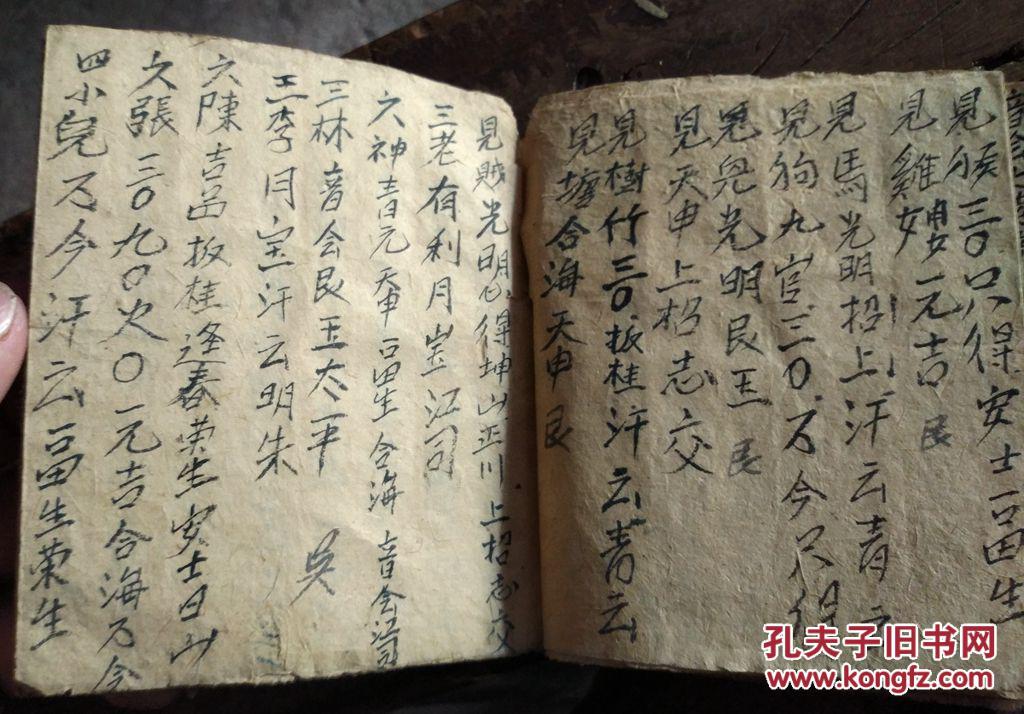 見猴三〇只得安士畐生
見雞姆一元吉 艮
見馬光明招上汗云青云
見狗九官三〇万今只得
見鬼光明艮玉 艮
見天申上招志交
見樹竹三〇扳桂汗云青云
見 合海天申 艮
見賊光明 得坤山正川上招志交
三老有利月宝江司
六神青元天申畐生合海音会江司
三林音会艮玉太平 吳
王李月宝汗云明朱
六陳吉品扳桂逢春荣生安士日山
久張三〇九〇火〇一元吉合海万今
四小兒万今汗云畐生荣生
孔夫子旧书网
www.kongfz.com